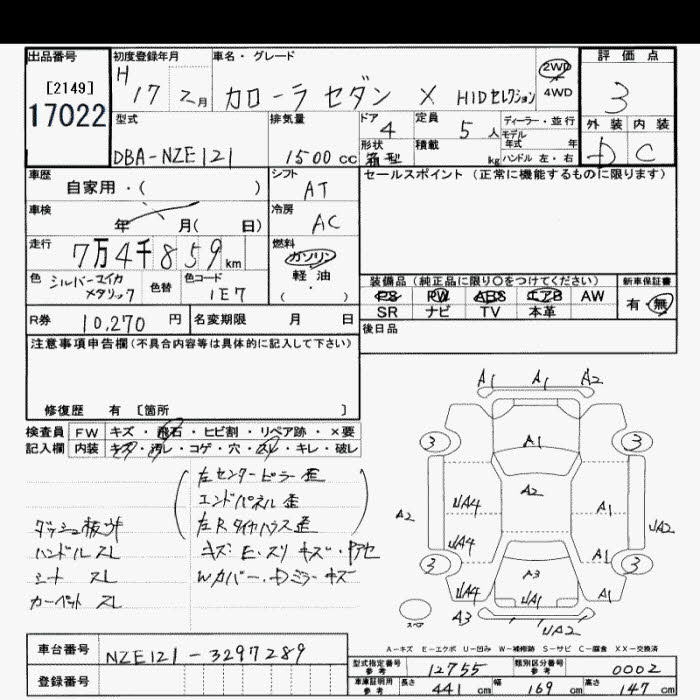 出品番号
[2149]
17022
初度登録年月
H 17 2月
車名・グレード
カローラセダン X HIDセレクション
2WD
4WD
評価点
3
外装 内装
D C
型式
DBA-NZE121
排気量
1500 cc
ドア 4
形状 箱型
定員 5 人
積載 kg
ディーラー・並行
モデル年式 年
ハンドル 左・右
車歴
自家用・( )
シフト
AT
セールスポイント (正常に機能するものに限ります)
車検
年 月( 日)
冷房
AC
走行
7万4千859km
燃料
ガソリン
軽油
( )
色 シルバーマイカメタリック
色替
色コード
1E7
装備品 (純正品に限り○をつけてください)
新車保証書
PS PW ABS エアB AW
有・無
SR ナビ TV 本革
R券 10,270 円
名変期限 月 日
後日品
注意事項申告欄(不具合内容等は具体的に記入して下さい)
修復歴 有 [箇所 ]
検査員 FW キズ・飛石・ヒビ割・リペア跡・×要
記入欄 内装 キズ・汚レ・コゲ・穴・スレ・キレ・破レ
左センターピラー歪
エンドパネル歪
左Rタイヤハウス歪
ダッシュ板
ハンドル スレ
シート スレ
カーペット スレ
キズ・E・スリキズ・
Wカバー・Dミラーキズ
A1 A1 A2
3 3
A1
A2
A2 UA4 A1 UA2
UA4 A1
3 A3 3
UA4 UA1 A1
スペア
A3 UA2
A-キズ E-エクボ U-凹み W-補修跡 S-サビ C-腐食 XX-交換済
車台番号 NZE121-3297289
登録番号
型式指定番号 参考 12755
類別区分番号 参考 0002
車庫証明用 参考 長さ 441 cm 幅 169 cm 高さ 147 cm